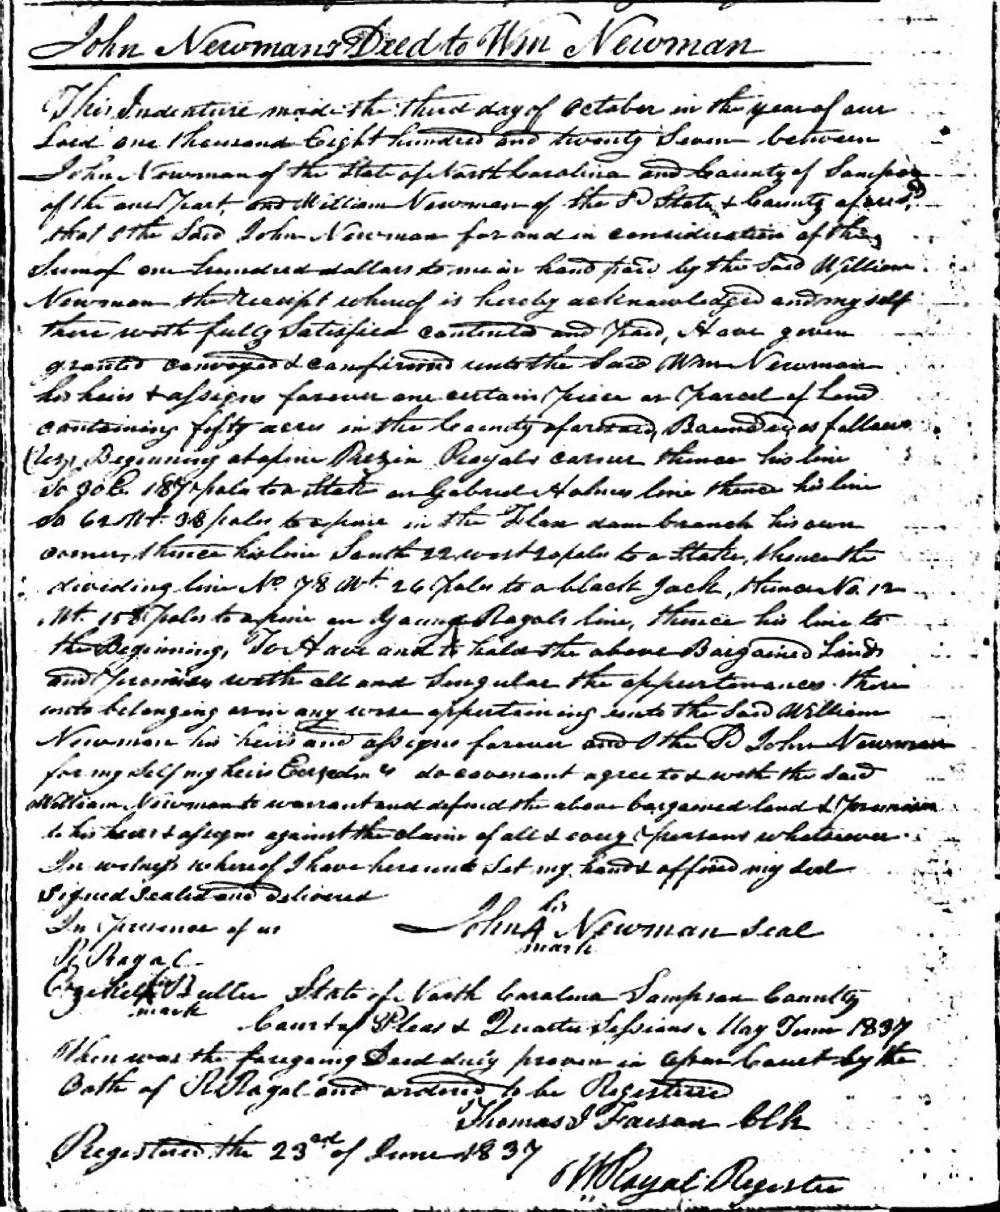 John Newmans Deed to Wm Newman
This Indenture made the third day of October in the year of our
Lord one thousand Eight hundred and twenty Seven between
John Newman of the State of North Carolina and County of Sampson
of the one Part, and William Newman of the Sd State & County aforesd,
that I the Said John Newman for and in consideration of the
Sum of one hundred dollars to me in hand paid by the Said William
Newman the receipt whereof is hereby acknowledged and my self
there with fully Satisfied contented and Paid, Have given
granted conveyed & confirmed unto the Said Wm Newman
his heirs & assigns forever one certain Piece or Parcel of Land
containing fifty acres in the County aforesaid, Bounded as follows
(viz) Beginning at a pine Royals corner thence his line
So 30 E 187 poles to a Stake on Gabriel Holmes line thence his line
So 62 Wt. 38 poles to a pine in the Flax dam branch his own
corner, thence his line South 22 west 20 poles to a Stake, thence the
dividing line No. 78 Wt 26 Poles to a black Jack, thence No. 12
Wt. 158 Poles to a pine on Young Royals line, thence his line to
the Beginning, To Have and to hold the above Bargained Lands
and Premises with all and Singular the appurtenances there
unto belonging or in any wise appertaining unto the Said William
Newman his heirs and assigns forever and I the Sd John Newman
for my self my heirs do covenant agree to & with the Said
William Newman to warrant and defend the above bargained land & Premises
to his heirs & assigns against the claim of all & every persons whatsoever
In witness whereof I have hereunto Set my hand & affixed my seal
Signed Sealed and Delivered
In Presence of us
his
John Newman Seal
mark
R Royal
Ezekiel Butler
mark
State of North Carolina Sampson County
Court of Pleas & Quarter Sessions May Term 1837
Then was the foregoing Deed duly proven in open Court by the
Oath of R Royal and ordered to be Registered
Thomas I Faison Clk
Registered the 23rd of June 1837
W Royal Register